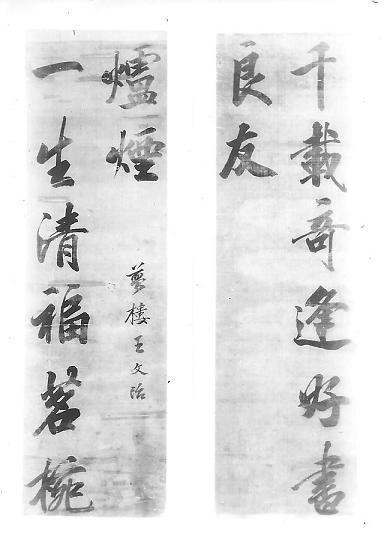 千載竒逢好書
良友
一生清福茗椀
爐煙
夢樓王文治